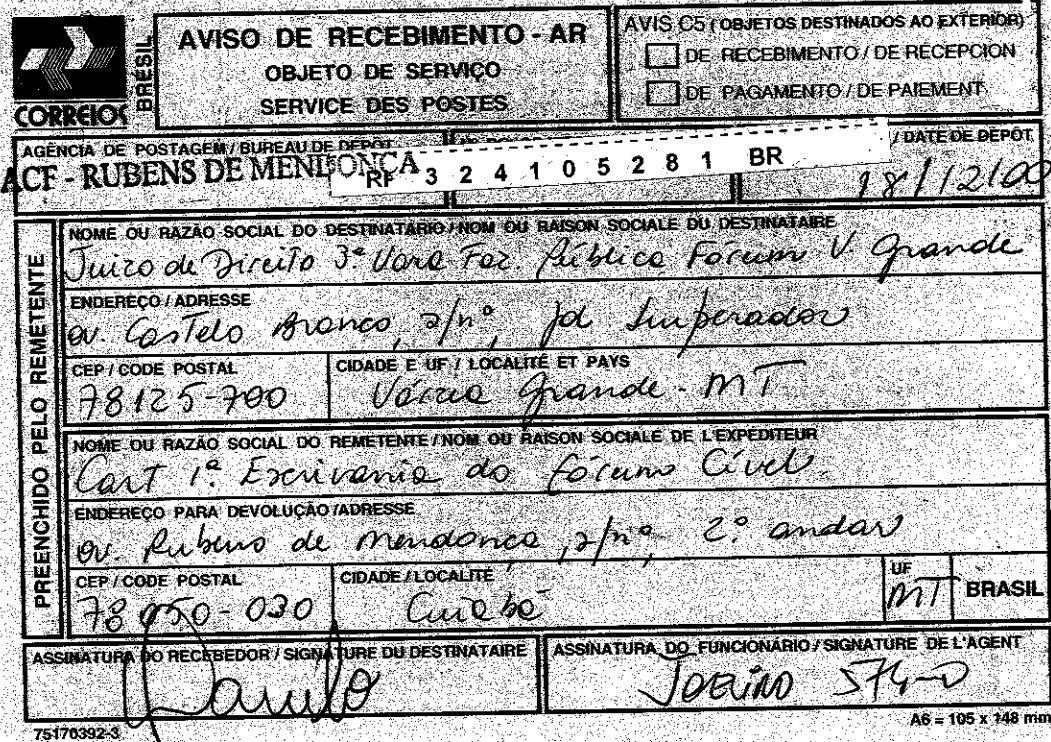 CORREIOS
BRÉSIL
AVISO DE RECEBIMENTO - AR
OBJETO DE SERVIÇO
SERVICE DES POSTES
AVIS C5 (OBJETOS DESTINADOS AO EXTERIOR)
DE RECEBIMENTO / DE RÉCEPCION
DE PAGAMENTO / DE PAIEMENT
AGÊNCIA DE POSTAGEM / BUREAU DE DEPÔT
/ DATE DE DEPÔT
ACF - RUBENS DE MENDONÇA
3 2 4 1 0 5 2 8 1 BR
18/12/00
PREENCHIDO PELO REMETENTE
NOME OU RAZÃO SOCIAL DO DESTINATÁRIO / NOM OU RAISON SOCIALE DU DESTINATAIRE
Juizo de Direito 3ª Vara Faz. Pública Fórum V. Grande
ENDEREÇO / ADRESSE
av. Castelo Branco, s/nº Jd Imperador
CEP / CODE POSTAL
CIDADE E UF / LOCALITÉ ET PAYS
78125-700
Várzea Grande - MT
NOME OU RAZÃO SOCIAL DO REMETENTE / NOM OU RAISON SOCIALE DE L'EXPÉDITEUR
Cart 1ª Escrivania do fórum Cível
ENDEREÇO PARA DEVOLUÇÃO / ADRESSE
av. Rubens de Mendonça, s/nº 2º andar
CEP / CODE POSTAL
CIDADE / LOCALITÉ
UF
78050-030
Cuiabá
MT
BRASIL
ASSINATURA DO RECEBEDOR / SIGNATURE DU DESTINATAIRE
ASSINATURA DO FUNCIONÁRIO / SIGNATURE DE L'AGENT
75170392-3
A6 = 105 x 148 mm